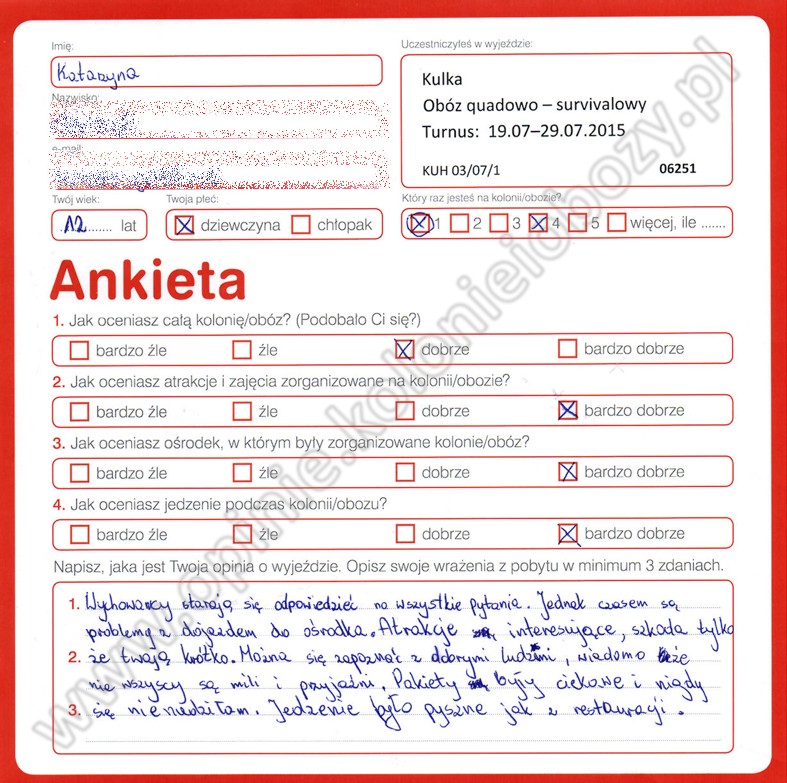 Imię:
Uczestniczyłeś w wyjeździe:
Katarzyna
Kulka
Obóz quadowo – survivalowy
Turnus: 19.07–29.07.2015
KUH 03/07/1 06251
Nazwisko:
e-mail:
Twój wiek: Twoja płeć: Który raz jesteś na kolonii/obozie?
12 lat dziewczyna chłopak 1 2 3 4 5 więcej, ile .......
Ankieta
1. Jak oceniasz całą kolonię/obóz? (Podobało Ci się?)
bardzo źle źle dobrze bardzo dobrze
2. Jak oceniasz atrakcje i zajęcia zorganizowane na kolonii/obozie?
bardzo źle źle dobrze bardzo dobrze
3. Jak oceniasz ośrodek, w którym były zorganizowane kolonie/obóz?
bardzo źle źle dobrze bardzo dobrze
4. Jak oceniasz jedzenie podczas kolonii/obozu?
bardzo źle źle dobrze bardzo dobrze
Napisz, jaka jest Twoja opinia o wyjeździe. Opisz swoje wrażenia z pobytu w minimum 3 zdaniach.
1. Wyhowawcy starają się odpowiedzieć na wszystkie pytania. Jednak czasem są
problemy z dojazdem do ośrodka. Atrakcje interesujące, szkoda tylko
2. że trwają krótko. Można się zapoznać z dobrymi ludźmi, wiadomo że
nie wszyscy są mili i przyjaźni. Pakiety były ciekawe i nigdy
3. się nie nudziłam. Jedzenie było pyszne jak z restauracji.
www.opinie.kolonieiobozy.pl